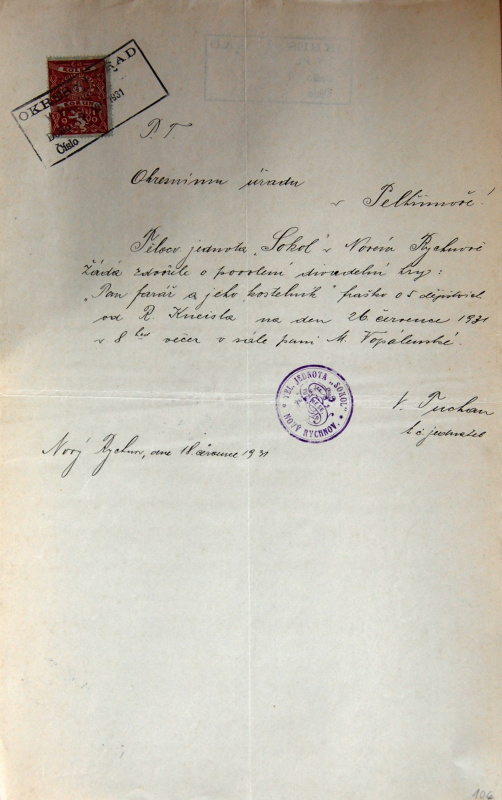 OKRESNÍ ÚŘAD
1931
Číslo
KOLEK
KORUNA
1919
P. T.
Okresnímu úřadu
v Pelhřimově!
Tělocv. jednota „Sokol" v Novém Rychnově
žádá zdvořile o povolení divadelní hry:
„Pan farář a jeho kostelník" fraška o 5 dějstvích
od R. Kneisla na den 26. července 1931
v 8 hod večer v sále paní M. Vopálenské.
TĚL. JEDNOTA „SOKOL"
NOVÝ RYCHNOV.
V. Tuchan
t. č. jednatel
Nový Rychnov, dne 18. července 1931
106